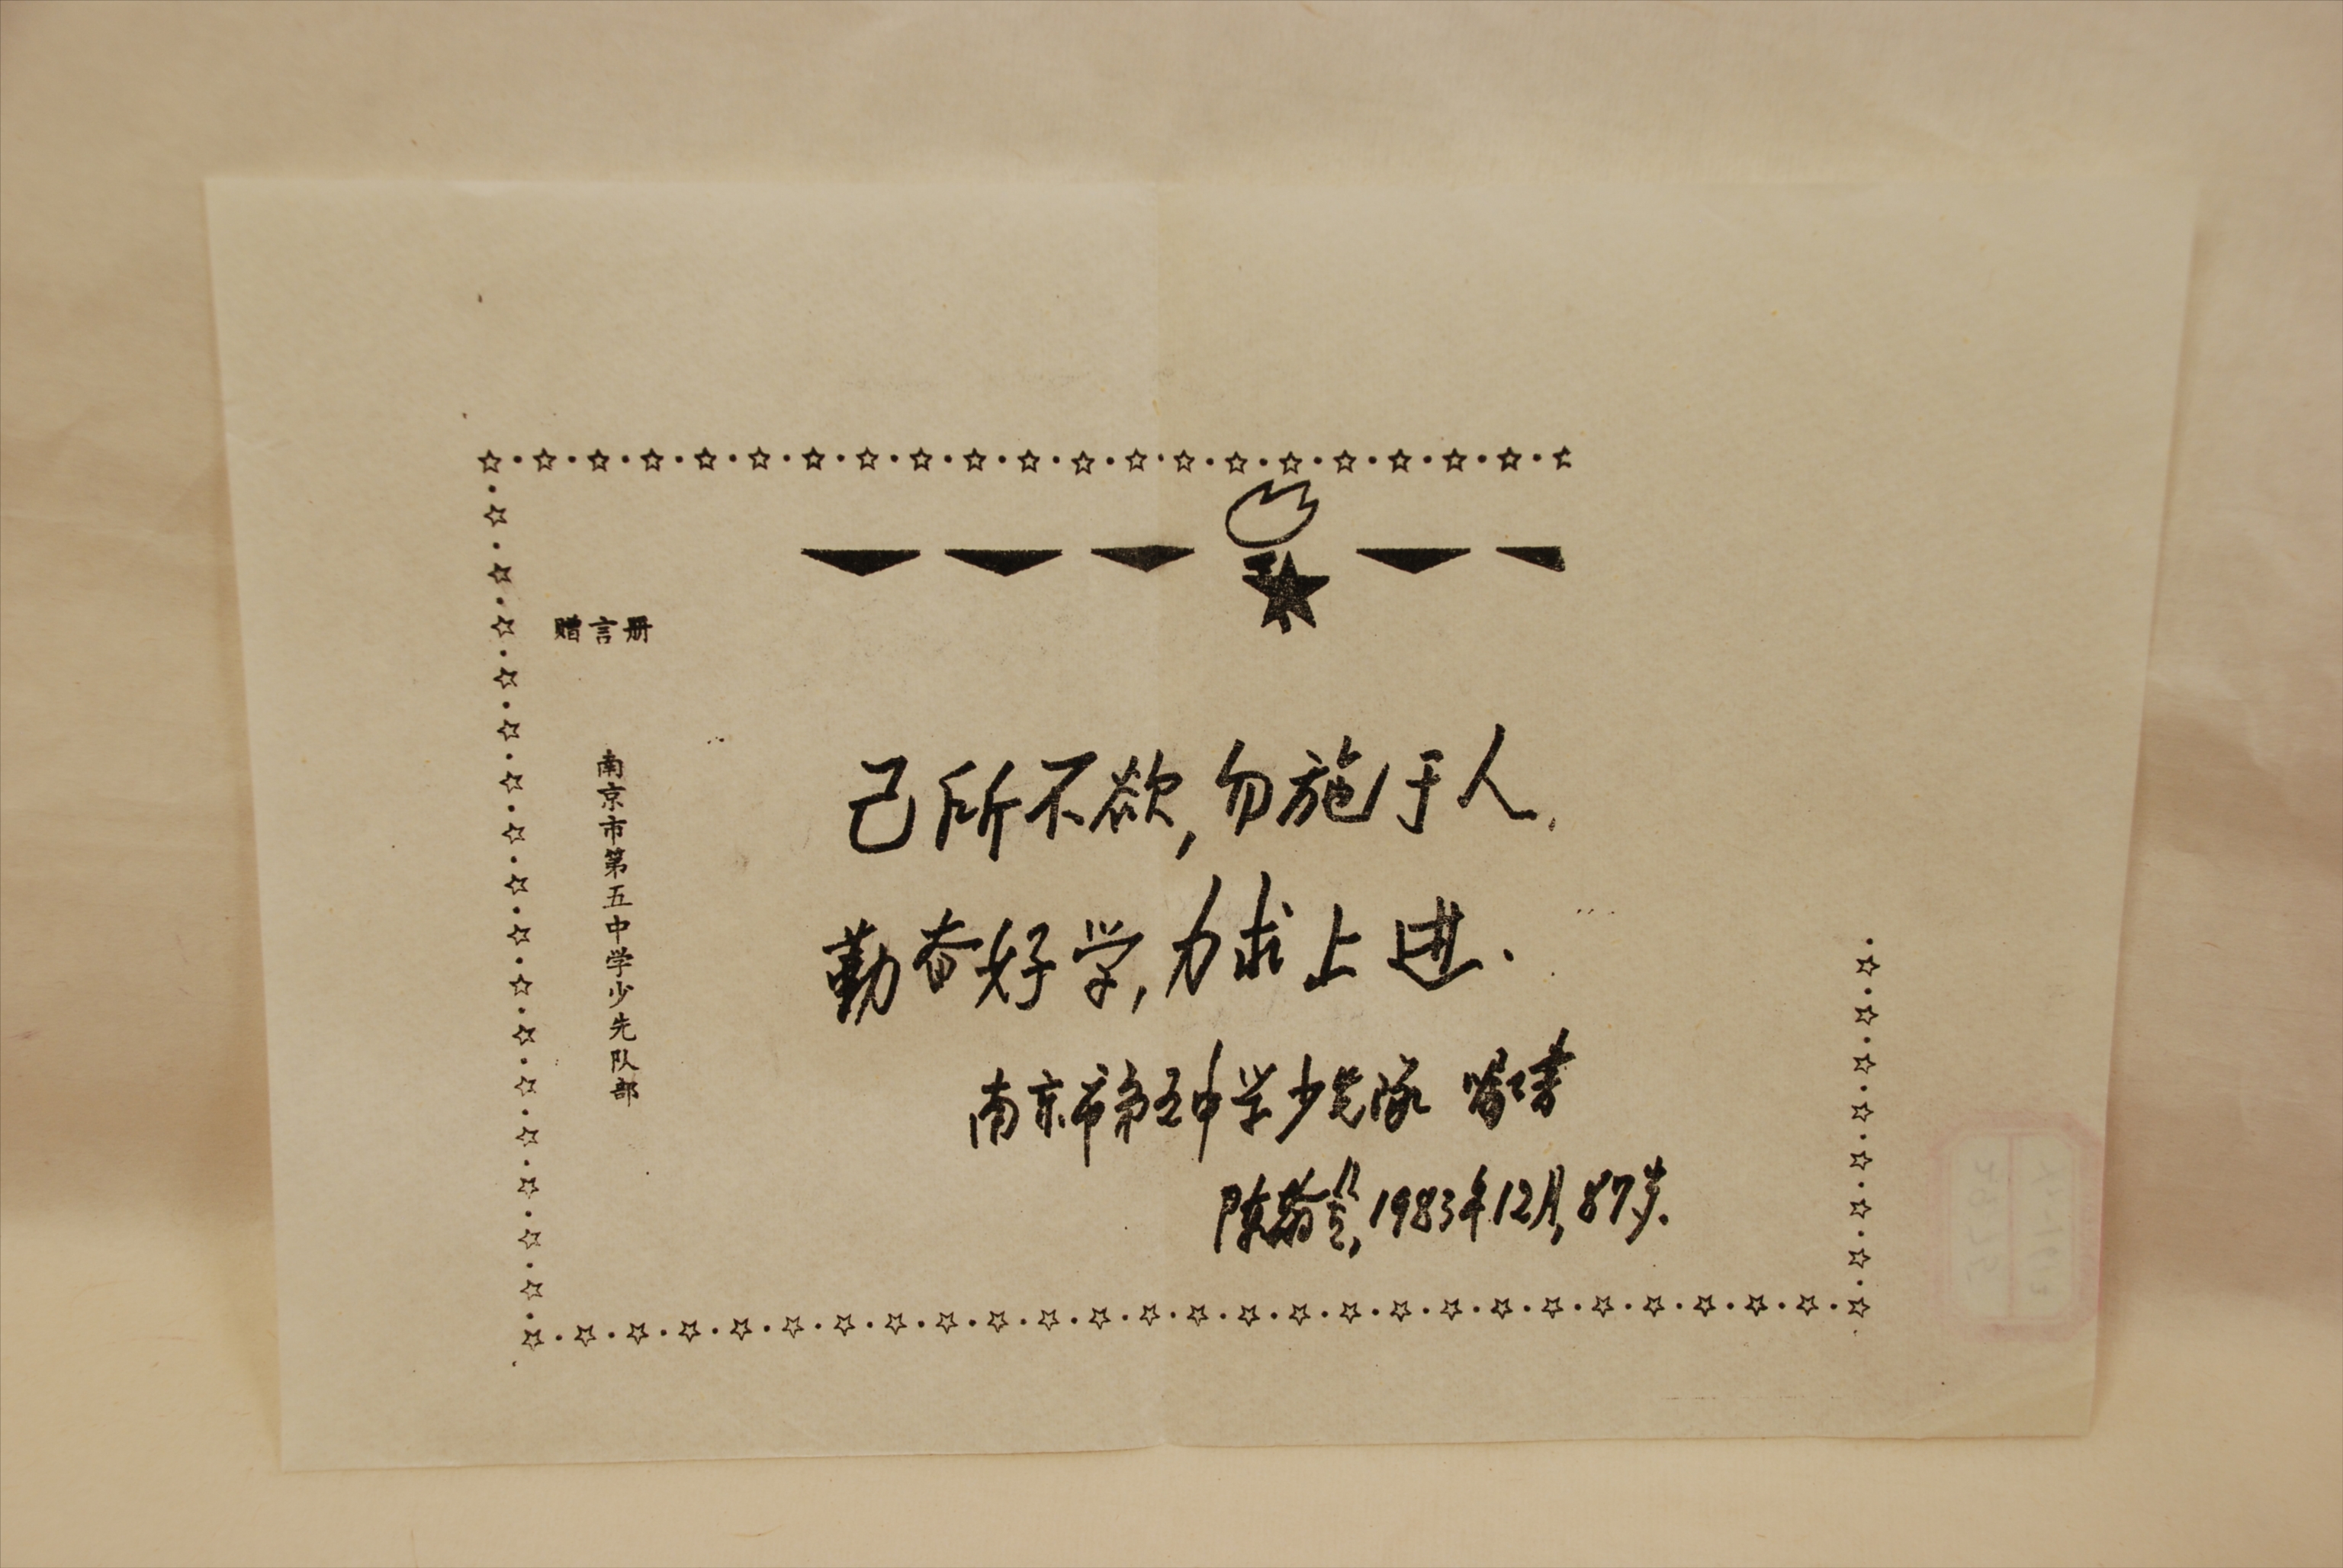 赠言册
南京市第五中学少先队部
己所不欲,勿施于人.
勤奋好学,力求上进.
南京市第五中学少先队 嘱书
陈鹤琴,1983年12月,87岁.